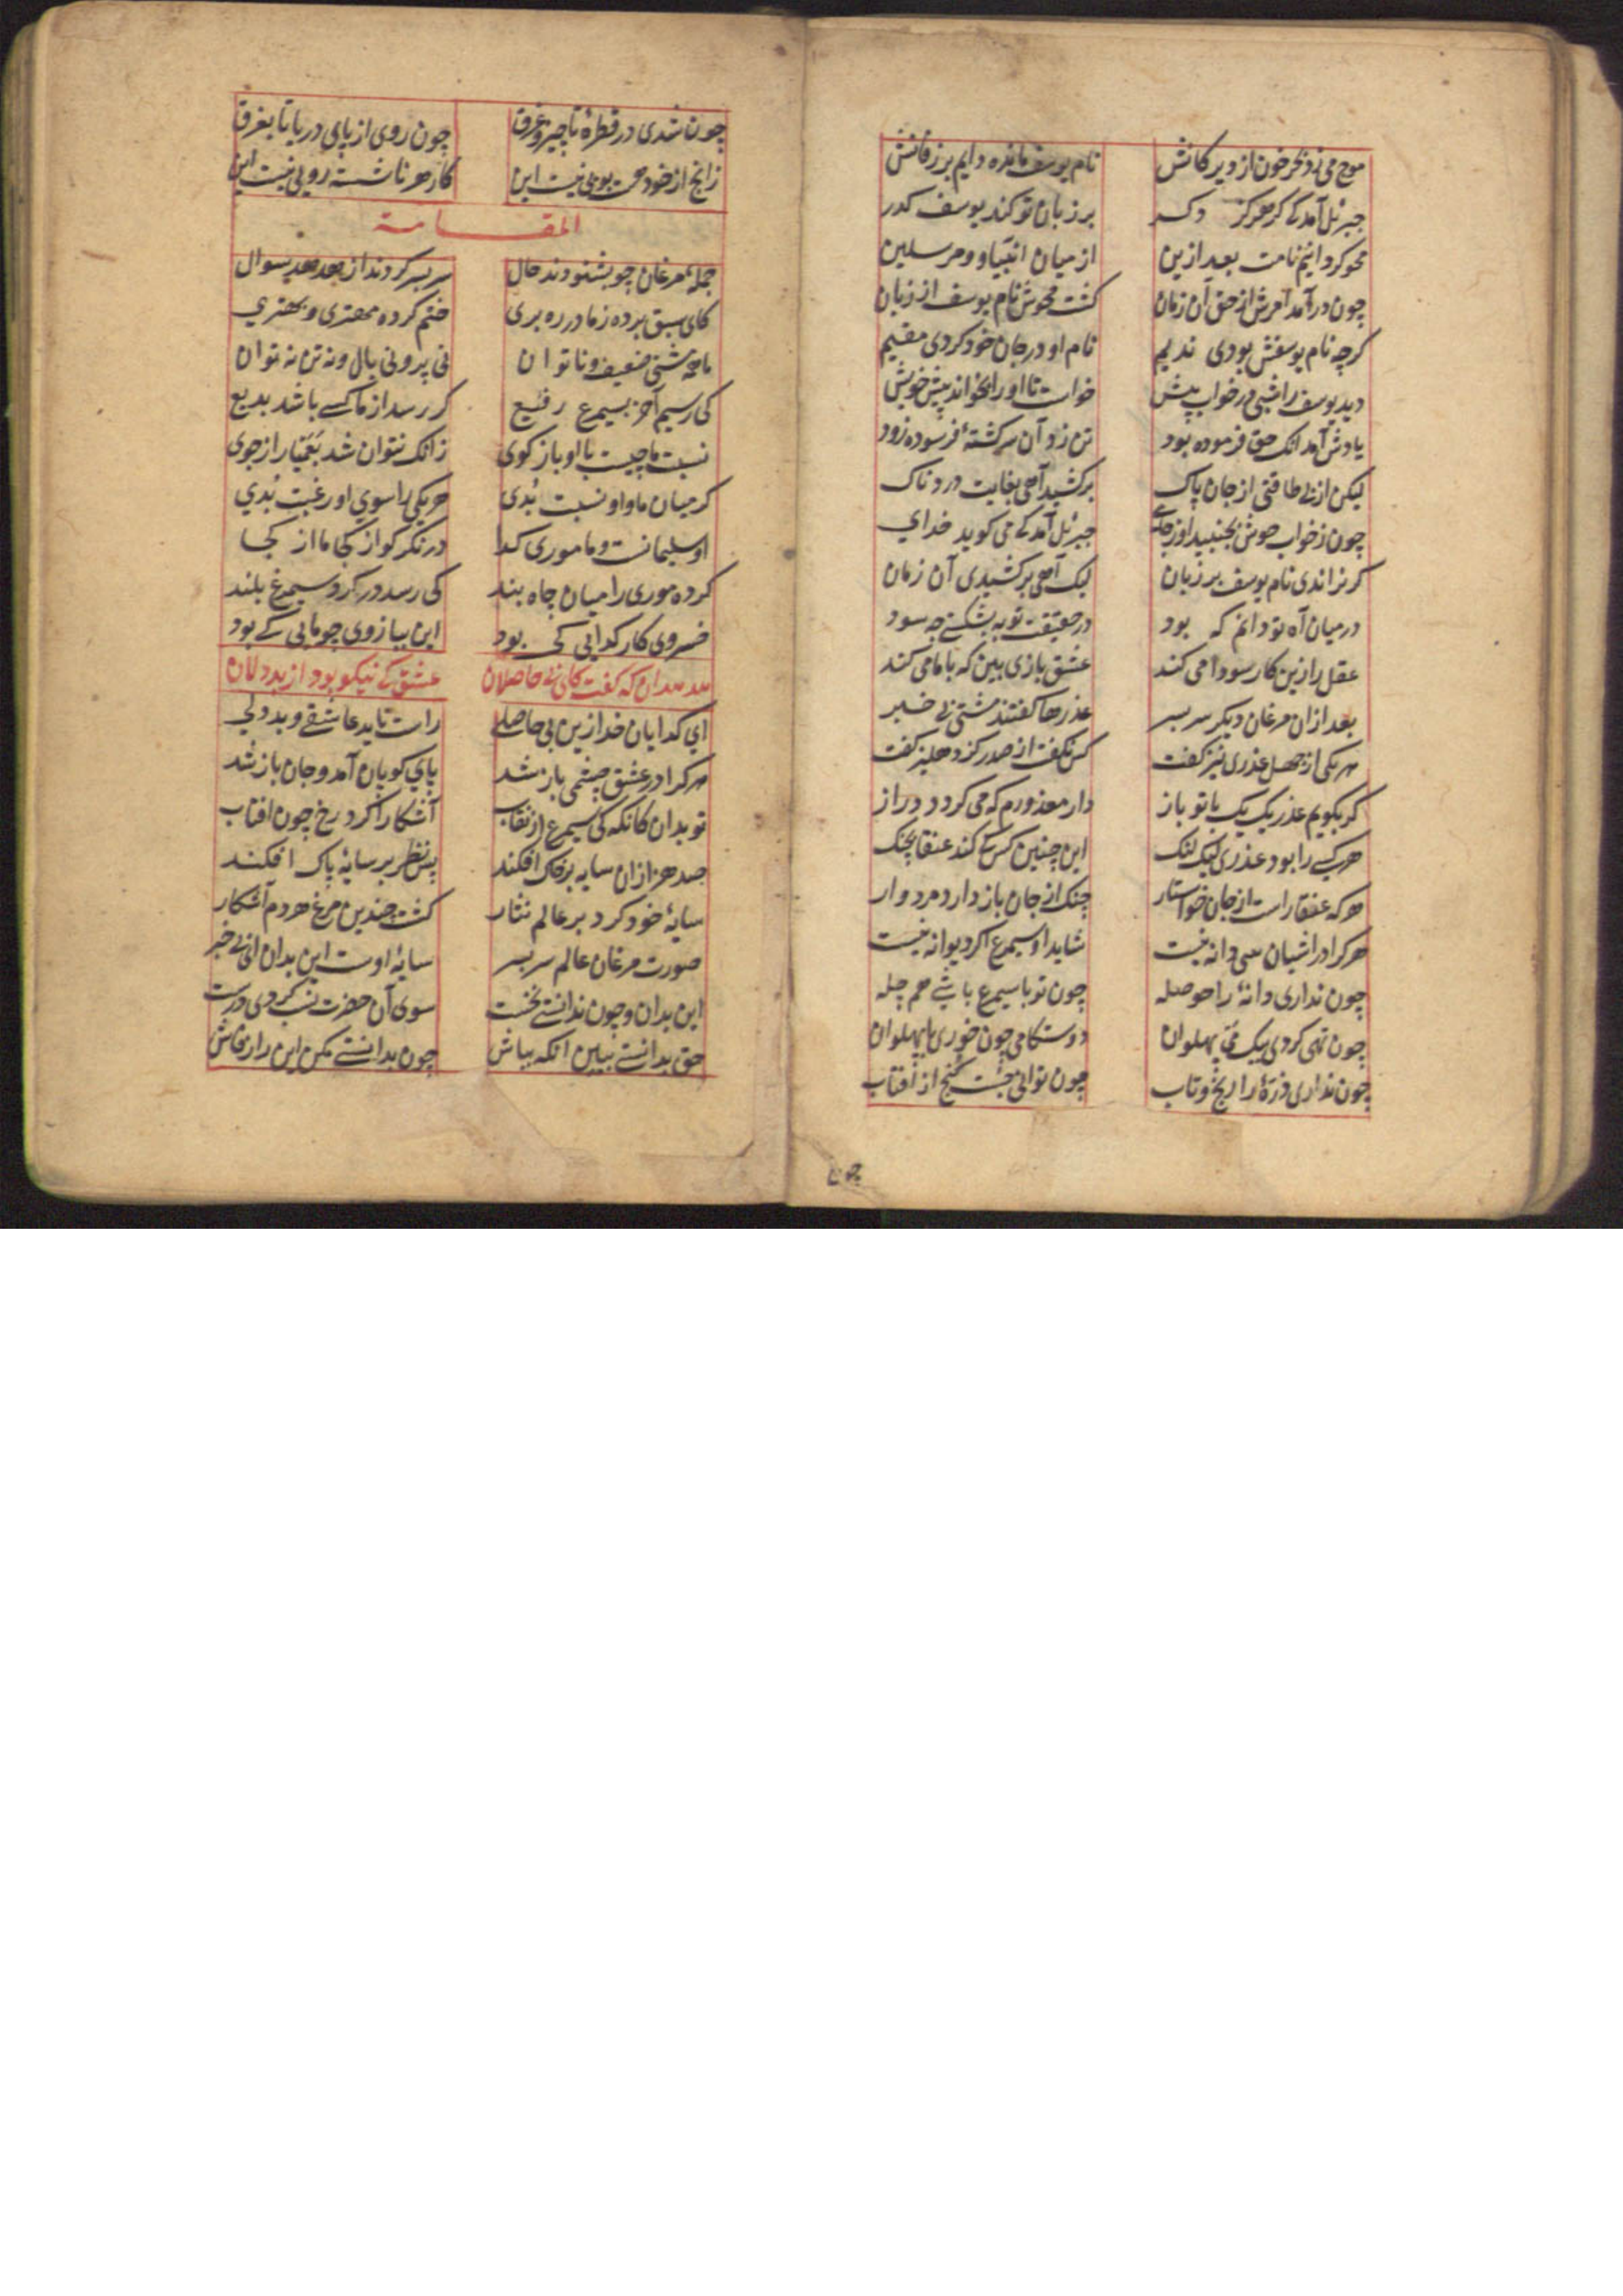 موج می زد بحر خون از دیدگانش نام یوسف مانده دایم بر زفانش
جبرئیل آمد که گر هرگز دکر بر زبان تو کند یوسف کذر
محو گردانیم نامت بعد ازین از میان انبیا و مرسلین
چون در آمد امرش از حق آن زمان کشت محوش نام یوسف از زبان
کرچه نام یوسفش بودی ندیم نام او در جان خود کردی مقیم
دید یوسف را شبی در خواب پیش خواست تا او را بخواند پیش خویش
یادش آمد انک حق فرموده بود تن زد آن سرکشتهٔ فرسوده زود
لیکن از بی طاقتی از جان پاک برکشید آهی بغایت دردناک
چون ز خواب خوش بجنبید او ز جای جبرئیل آمد که می کوید خدای
کر نراندی نام یوسف بر زبان لیک آهی برکشیدی آن زمان
در میان آه تو دانم که بود در حقیقت توبه بشکستی چه سود
عقل را زین کار سودا می کند عشق بازی بین که با ما می کند
بعد ازان مرغان دیکر سر بسر عذرها کفتند مشتی بی خبر
هر یکی از جهل عذری نیز کفت کس نکفت از صدر کز دهلیز کفت
کر بکویم عذر یک یک با تو باز دار معذورم که می کردد دراز
هر کسی را بود عذری لیک لنک این چنین کس کی کند عنقا بچنک
هر که عنقا راست از جان خواستار چنک از جان باز دارد مردوار
هر کرا در اشیان سی دانه نیست شاید او سیمرغ اکر دیوانه نیست
چون نداری دانهٔ را حوصله چون تو با سیمرغ باشی هم چله
چون تهی کردی بیک می پهلوان دوستکامی چون خوری با پهلوان
چون نداری ذرهٔ را رنج و تاب چون توانی جست کنج از آفتاب
چون
چون شدی در قطرهٔ ناچیز غرق چون روی از پای دریا تا بفرق
زانچ از خود هست بویی نیست این کار هر ناشسته رویی نیست این
المقامة
جملهٔ مرغان چو بشنودند حال سر بسر کردند از هدهد سوال
کای سبق برده ز ما در ره بری ختم کرده مهتری و بهتری
ما همه مشتی ضعیف و ناتوان نی پر و نی بال و نه تن نه توان
کی رسیم آخر بسیمرغ رفیع کر رسد از ما کسی باشد بدیع
نسبت ما چیست با او باز کوی زانک نتوان شد بعمیا راز جوی
کر میان ما و او نسبت بدی هر یکی را سوی او رغبت بدی
او سلیمانست و ما موری کدا در نکر کو از کجا ما از کجا
کرده موری را میان چاه بند کی رسد در کرد سیمرغ بلند
خسروی کار کدایی کی بود این ببازوی چو مایی کی بود
هدهد آن که کفت کای بی حاصلان عشق کی نیکو بود از بددلان
ای کدایان خدا زین بی حاصلی راست ناید عاشقی و بددلی
هر کرا در عشق چشمی باز شد پای کوبان آمد و جان باز شد
تو بدان کانکه که سیمرغ از نقاب آشکارا کرد رخ چون افتاب
صد هزاران سایه بر خاک افکند پس نظر بر سایهٔ پاک افکند
سایهٔ خود کرد بر عالم نثار کشت چندین مرغ هر دم آشکار
صورت مرغان عالم سر بسر سایهٔ اوست این بدان ای بی خبر
این بدان و چون ندانستی نخست سوی آن حضرت نسب کردی درست
حق بدانستی ببین آنکه بباش چون بدانستی مکن این راز فاش